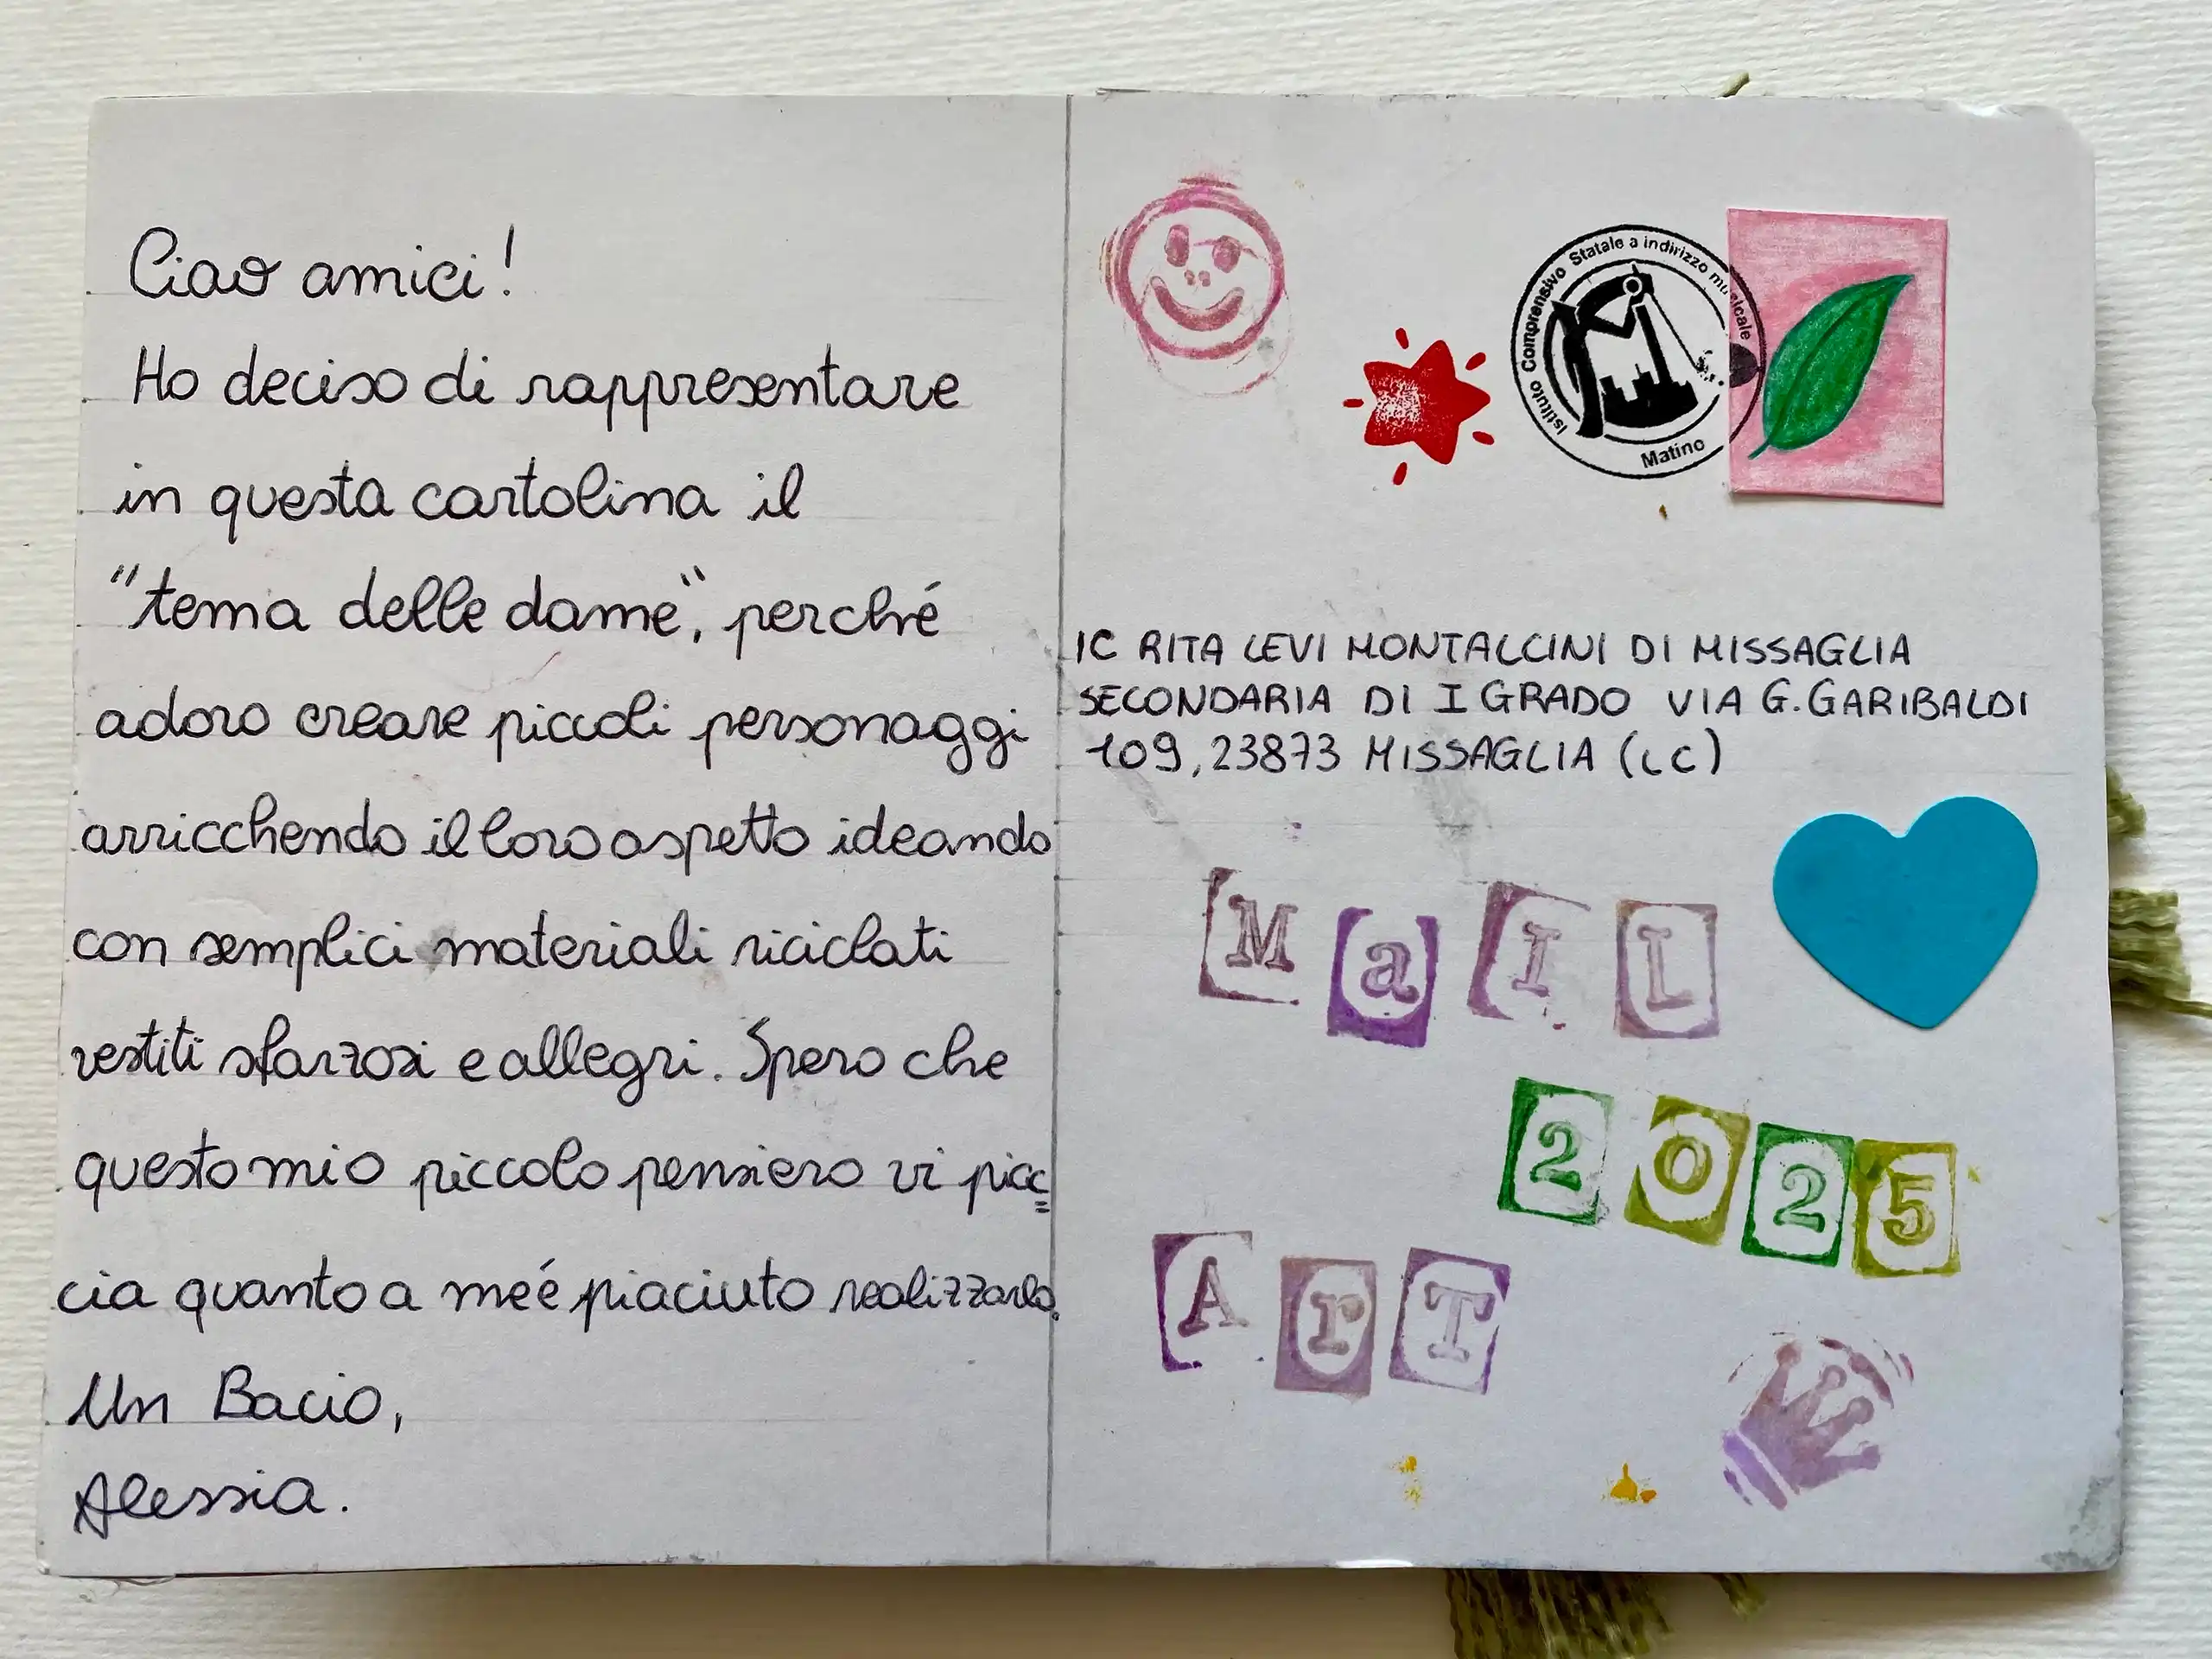 Ciao amici!
Ho deciso di rappresentare
in questa cartolina il
"tema delle dame", perché
adoro creare piccoli personaggi
arricchendo il loro aspetto ideando
con semplici materiali riciclati
vestiti sfarzosi e allegri. Spero che
questo mio piccolo pensiero vi piac=
cia quanto a me é piaciuto realizzarlo.
Un Bacio,
Alessia.
Istituto Comprensivo Statale a indirizzo musicale
Matino
IC RITA LEVI MONTALCINI DI MISSAGLIA
SECONDARIA DI I GRADO VIA G. GARIBALDI
109, 23873 MISSAGLIA (LC)
MaIL
2025
ArT